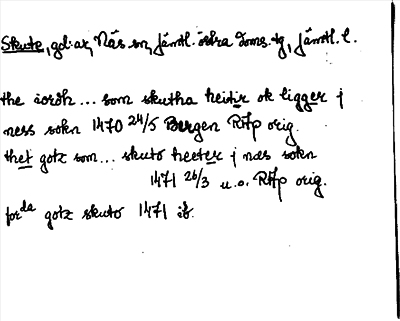 Skute, gd:ar, Näs sn, Jämtl. östra doms. tg, Jämtl. l.
the iordh... som skutha heitir ok ligger j
ness sokn 1470 24/5 Bergen RAp orig.
thet gotz som... skuto heeter j næs sokn
1471 26/3 u.o. RAp orig.
forda gotz skuto 1471 ib.